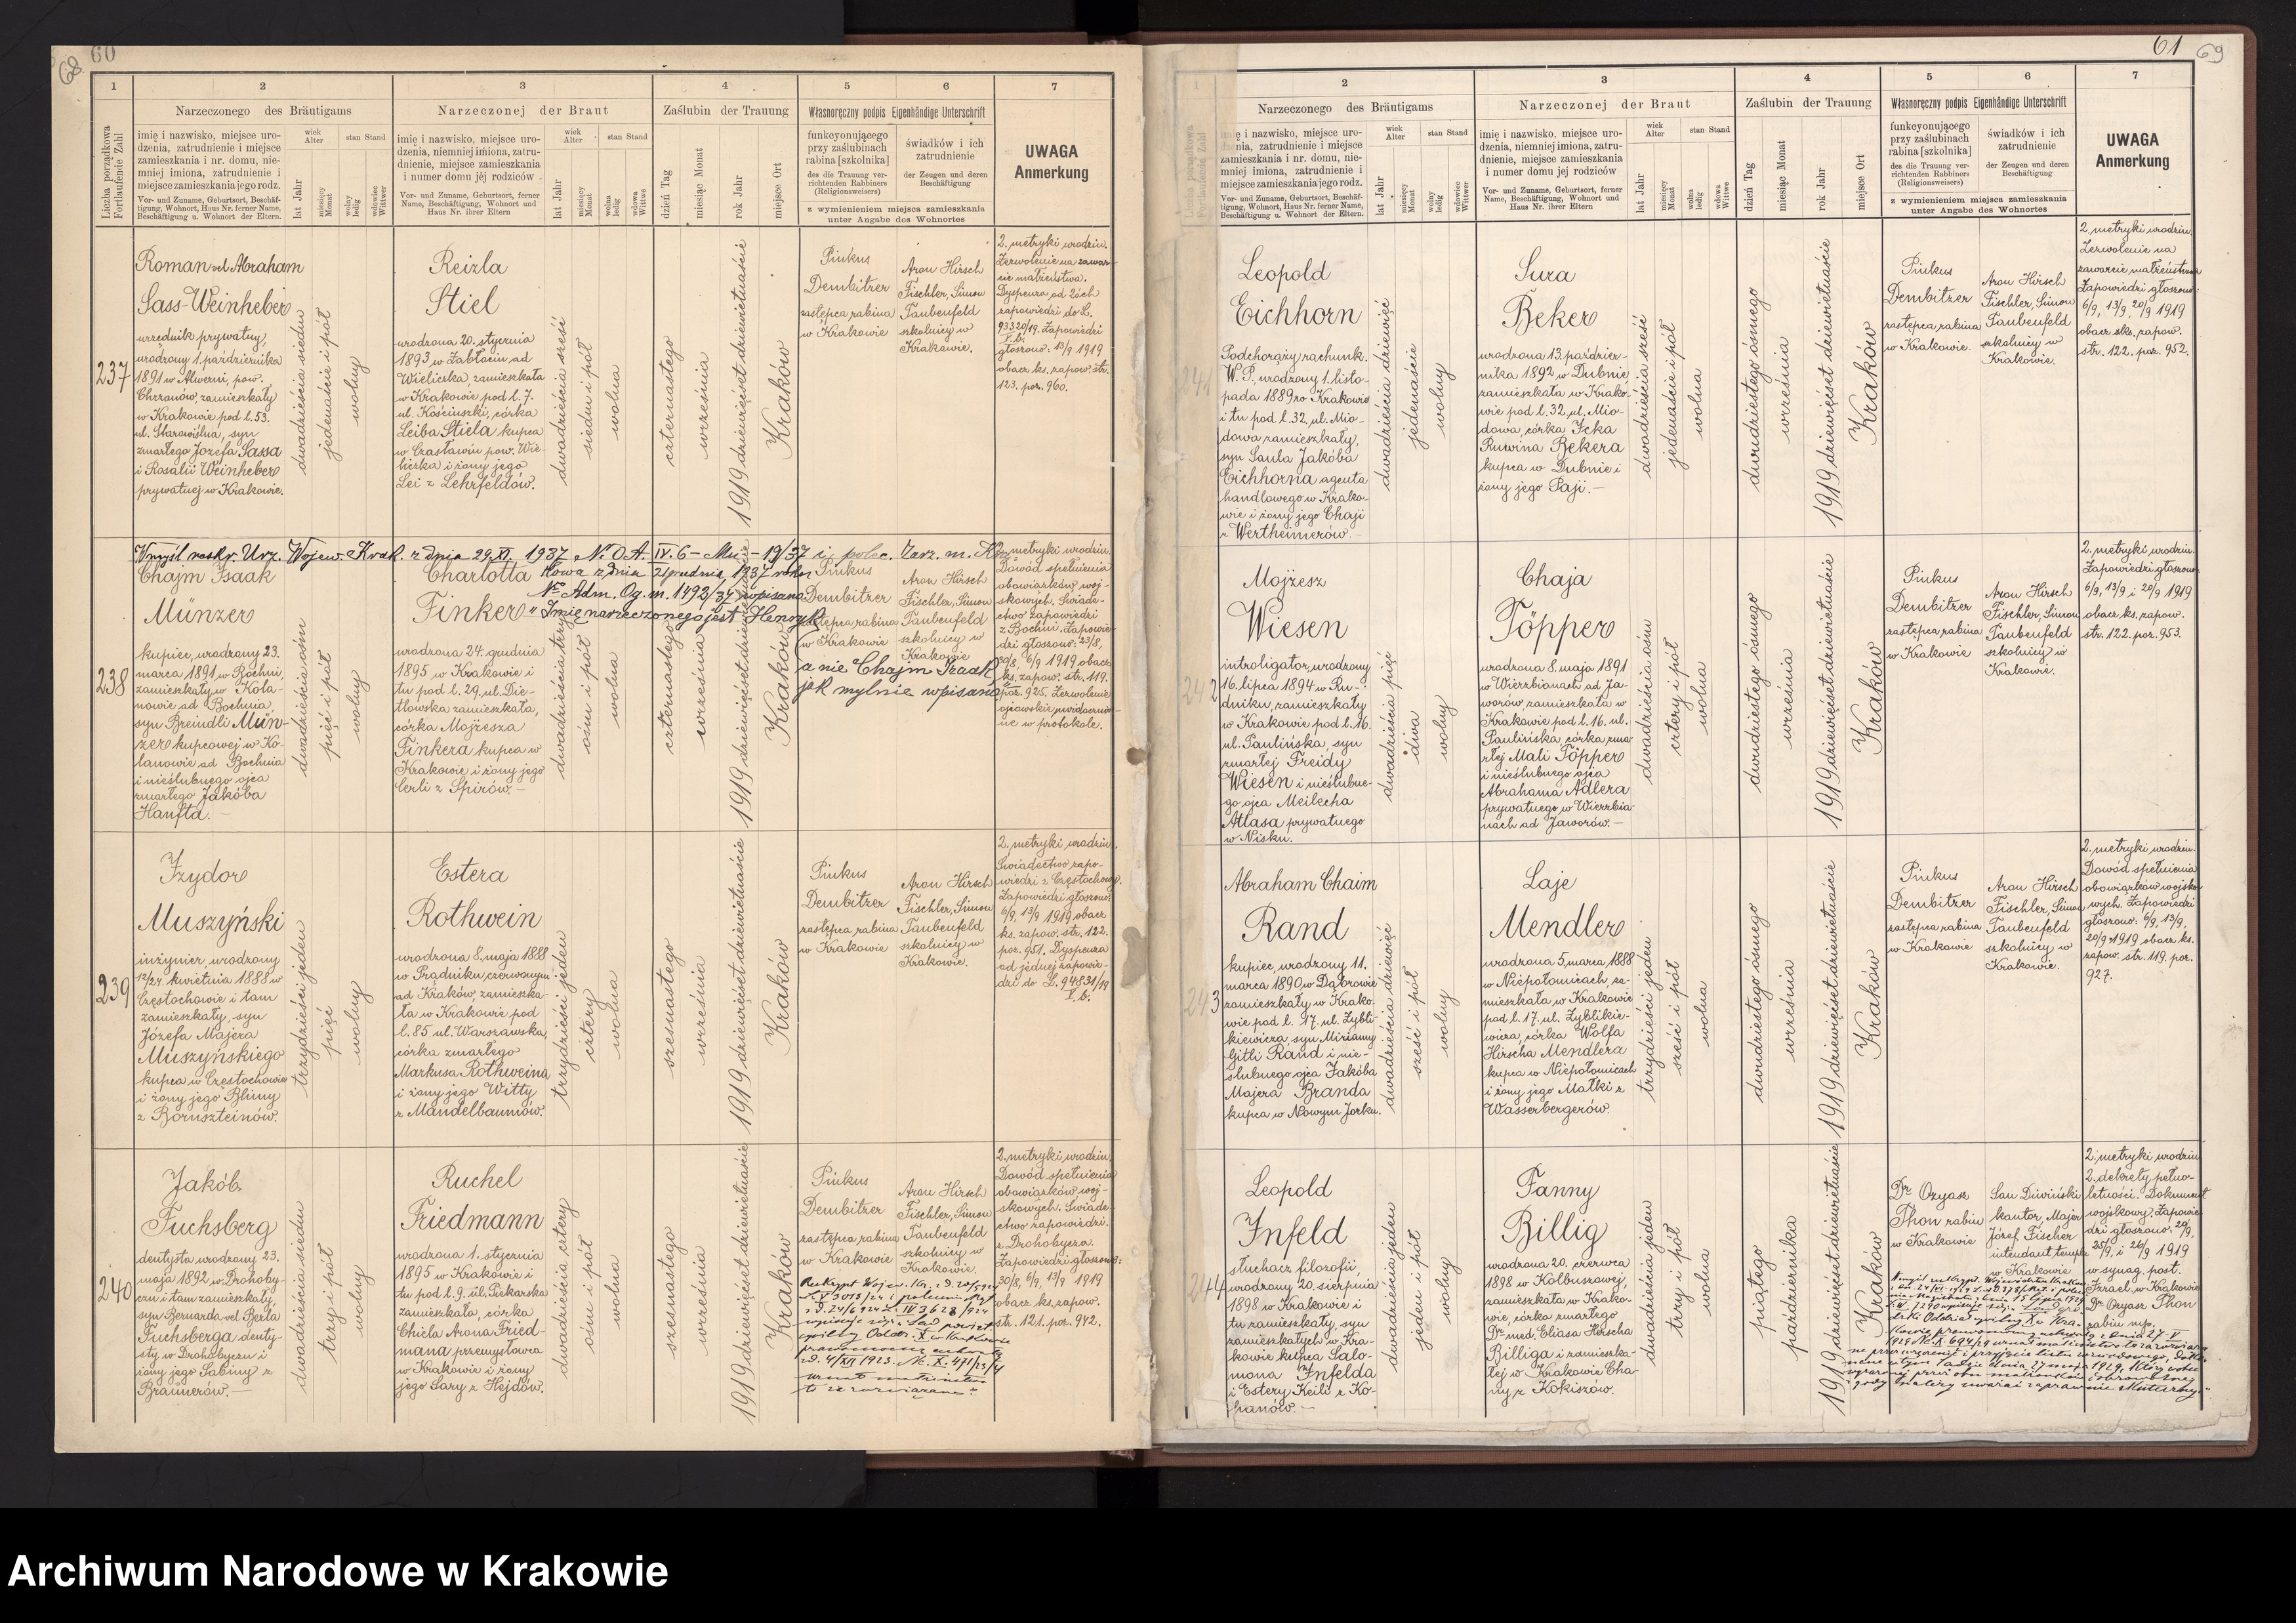 60
68
1
2
3
4
5
6
7
Narzeczonego des Bräutigams
Narzeczonej der Braut
Zaślubin der Trauung
Własnoręczny podpis Eigenhändige Unterschrift
UWAGA
Anmerkung
Liczba porządkowa
Fortlaufende Zahl
imię i nazwisko, miejsce uro-
dzenia, zatrudnienie i miejsce
zamieszkania i nr. domu, nie-
mniej imiona, zatrudnienie i
miejsce zamieszkania jego rodz.
Vor- und Zuname, Geburtsort, Beschäf-
tigung, Wohnort, Haus Nr. ferner Name,
Beschäftigung u. Wohnort der Eltern.
wiek
Alter
stan Stand
lat Jahr
miesięcy
Monat
wolny
ledig
wdowiec
Wittwer
imię i nazwisko, miejsce uro-
dzenia, niemniej imiona, zatru-
dnienie, miejsce zamieszkania
i numer domu jéj rodziców
Vor- und Zuname, Geburtsort, ferner
Name, Beschäftigung, Wohnort und
Haus Nr. ihrer Eltern
wiek
Alter
stan Stand
lat Jahr
miesięcy
Monat
wolna
ledig
wdowa
Wittwe
dzień Tag
miesiąc Monat
rok Jahr
miejsce Ort
funkcyonującego
przy zaślubinach
rabina [szkolnika]
des die Trauung ver-
richtenden Rabbiners
(Religionsweisers)
świadków i ich
zatrudnienie
der Zeugen und deren
Beschäftigung
z wymienieniem miejsca zamieszkania
unter Angabe des Wohnortes
237
Roman vel Abraham
Sass-Weinheber
urzędnik prywatny,
urodzony 1. października
1891 w Alwerni, pow.
Chrzanów, zamieszkały
w Krakowie pod l. 53.
ul. Starowiślna, syn
zmarłego Józefa Sassa
i Rosalii Weinheber
prywatnej w Krakowie.
dwadzieścia siedm
jedenaście i pół
wolny
Reizla
Stiel
urodzona 20. stycznia
1893 w Zabłociu ad
Wieliczka, zamieszkała
w Krakowie pod l. 7.
ul. Kościuszki, córka
Leiba Stiela kupca
w Czasławiu pow. Wie-
liczka i żony jego
Lei z Lehrfeldów.
dwadzieścia sześć
siedm i pół
wolna
czternastego
września
1919 dziewięćset dziewiętnaście
Kraków
Pinkus
Dembitzer
zastępca rabina
w Krakowie
Aron Hirsch
Fischler, Simon
Taubenfeld
szkolnicy w
Krakowie.
2. metryki urodzin.
Zezwolenie na zawar-
cie małżeństwa.
Dyspenza od 2óch
zapowiedzi do L.
93320/19. Zapowiedzi
głoszono: 13/9 1919
obacz ks. zapow. str.
123. poz. 960.
Wmyśl reskr. Urz. Wojew. Krak. z dnia 29.XI. 1937 Nr. OA. IV. 6-Mu-19/37 i polec. Zarz. m. Kra-
kowa z dnia 21 grudnia 1937 roku
No Adm. Og. m. 1492/37 wpisano
"Imię narzeczonego jest Henryk
a nie Chajm Izaak,
jak mylnie wpisano"
238
Chajm Izaak
Münzer
kupiec, urodzony 23.
marca 1891 w Bochni,
zamieszkały w Kola-
nowie ad Bochnia,
syn Breindli Mün-
zer kupcowej w Ko-
lanowie ad Bochnia
i nieślubnego ojca
zmarłego Jakóba
Hanfta.
dwadzieścia ośm
pięć i pół
wolny
Charlotta
Finker
urodzona 24. grudnia
1895 w Krakowie i
tu pod l. 29. ul. Die-
tlowska zamieszkała,
córka Mojżesza
Finkera kupca w
Krakowie i żony jego
Cerli z Spirów.
dwadzieścia trzy
ośm i pół
wolna
czternastego
września
1919 dziewięćset dziewiętnaście
Kraków
Pinkus
Dembitzer
zastępca rabina
w Krakowie
Aron Hirsch
Fischler, Simon
Taubenfeld
szkolnicy w
Krakowie
2. metryki urodzin.
Dowód spełnienia
obowiązków woj-
skowych. Świade-
ctwo zapowiedzi
z Bochni. Zapowie-
dzi głoszono: 23/8,
30/8, 6/9 1919 obacz
ks. zapow. str. 119.
poz. 925. Zezwolenie
ojcowskie uwidocznio-
ne w protokole.
239
Izydor
Muszyński
inżynier, urodzony
12/24. kwietnia 1888 w
Częstochowie i tam
zamieszkały, syn
Józefa Majera
Muszyńskiego
kupca w Częstochowie
i żony jego Blimy
z Bornszteinów.
trzydzieści jeden
pięć
wolny
Estera
Rothwein
urodzona 8. maja 1888
w Prądniku czerwonym
ad Kraków, zamieszka-
ła w Krakowie pod
l. 85. ul. Warszawska,
córka zmarłego
Markusa Rothweina
i żony jego Witty
z Mandelbaumów.
trzydzieści jeden
cztery
wolna
szesnastego
września
1919 dziewięćset dziewiętnaście
Kraków
Pinkus
Dembitzer
zastępca rabina
w Krakowie
Aron Hirsch
Fischler, Simon
Taubenfeld
szkolnicy w
Krakowie.
2. metryki urodzin.
Świadectwo zapo-
wiedzi z Częstochowy.
Zapowiedzi głoszono:
6/9, 13/9 1919 obacz
ks. zapow. str. 122.
poz. 951. Dyspenza
od jednej zapowie-
dzi do L. 94831/19
240
Jakób
Fuchsberg
dentysta urodzony 23.
maja 1892 w Drohoby-
czu i tam zamieszkały
syn Bernarda vel Berla
Fuchsberga denty-
sty w Drohobyczu i
żony jego Sabiny z
Bräunerów.
dwadzieścia siedm
trzy i pół
wolny
Ruchel
Friedmann
urodzona 1. stycznia
1895 w Krakowie i
tu pod l. 9. ul. Piekarska
zamieszkała, córka
Chiela Arona Fried-
mana przemysłowca
w Krakowie i żony
jego Sary z Hejdów.
dwadzieścia cztery
ośm i pół
wolna
szesnastego
września
1919 dziewięćset dziewiętnaście
Kraków
Pinkus
Dembitzer
zastępca rabina
w Krakowie
Aron Hirsch
Fischler, Simon
Taubenfeld
szkolnicy w
Krakowie.
2. metryki urodzin.
Dowód spełnienia
obowiązków woj-
skowych. Świade-
ctwo zapowiedzi
z Drohobycza.
Zapowiedzi głoszono:
30/8, 6/9, 13/9 1919
obacz ks. zapow.
str. 121. poz. 942.
61
69
1
2
3
4
5
6
7
Narzeczonego des Bräutigams
Narzeczonej der Braut
Zaślubin der Trauung
Własnoręczny podpis Eigenhändige Unterschrift
UWAGA
Anmerkung
Liczba porządkowa
Fortlaufende Zahl
imię i nazwisko, miejsce uro-
dzenia, zatrudnienie i miejsce
zamieszkania i nr. domu, nie-
mniej imiona, zatrudnienie i
miejsce zamieszkania jego rodz.
Vor- und Zuname, Geburtsort, Beschäf-
tigung, Wohnort, Haus Nr. ferner Name,
Beschäftigung u. Wohnort der Eltern.
wiek
Alter
stan Stand
lat Jahr
miesięcy
Monat
wolny
ledig
wdowiec
Wittwer
imię i nazwisko, miejsce uro-
dzenia, niemniej imiona, zatru-
dnienie, miejsce zamieszkania
i numer domu jej rodziców
Vor- und Zuname, Geburtsort, ferner
Name, Beschäftigung, Wohnort und
Haus Nr. ihrer Eltern
wiek
Alter
stan Stand
lat Jahr
miesięcy
Monat
wolna
ledig
wdowa
Wittwe
dzień Tag
miesiąc Monat
rok Jahr
miejsce Ort
funkcyonującego
przy zaślubinach
rabina [szkolnika]
des die Trauung ver-
richtenden Rabbiners
(Religionsweisers)
świadków i ich
zatrudnienie
der Zeugen und deren
Beschäftigung
z wymienieniem miejsca zamieszkania
unter Angabe des Wohnortes
241
Leopold
Eichhorn
Podchorąży rachunk.
W. P., urodzony 1. listo-
pada 1889 ro Krakowie
i tu pod l. 32. ul. Mio-
dowa zamieszkały,
syn Saula Jakóba
Eichhorna agenta
handlowego w Krako-
wie i żony jego Chaji
z Wertheimerów.
dwadzieścia dziewięć
jedenaście
wolny
Sura
Beker
urodzona 13. paździer-
nika 1892 w Dubnie
zamieszkała w Krako-
wie pod l. 32. ul. Mio-
dowa, córka Icka
Ruwina Bekera
kupca w Dubnie i
żony jego Paji.
dwadzieścia sześć
jedenaście i pół
wolna
dwudziestego ósmego
września
1919 dziewięćset dziewiętnaście
Kraków
Pinkus
Dembitzer
zastępca rabina
w Krakowie.
Aron Hirsch
Fischler, Simon
Taubenfeld
szkolnicy w
Krakowie.
2. metryki urodzin.
Zezwolenie na
zawarcie małżeństwa
Zapowiedzi głoszono:
6/9, 13/9, 20/9 1919
obacz ks. zapow.
str. 122. poz. 952.
242
Mojżesz
Wiesen
introligator, urodzony
16. lipca 1894 w Ru-
dniku, zamieszkały
w Krakowie pod l. 16.
ul. Paulińska, syn
zmarłej Freidy
Wiesen i nieślubne-
go ojca Meilecha
Atlasa prywatnego
w Nisku.
dwadzieścia pięć
dwa
wolny
Chaja
Töpper
urodzona 8. maja 1891
w Wierzbianach ad Ja-
worów, zamieszkała w
Krakowie pod l. 16. ul.
Paulińska, córka zma-
rłej Mali Töpper
i nieślubnego ojca
Abrahama Adlera
prywatnego w Wierzbia-
nach ad Jaworów.
dwadzieścia ośm
cztery i pół
wolna
dwudziestego ósmego
września
1919 dziewięćset dziewiętnaście
Kraków
Pinkus
Dembitzer
zastępca rabina
w Krakowie
Aron Hirsch
Fischler, Simon
Taubenfeld
szkolnicy w
Krakowie.
2. metryki urodzin.
Zapowiedzi głoszono
6/9, 13/9 i 20/9 1919
obacz ks. zapow.
str. 122. poz. 953.
243
Abraham Chaim
Rand
kupiec, urodzony 11.
marca 1890 w Dąbrowie
zamieszkały w Krako-
wie pod l. 17. ul. Zybli-
kiewicza, syn Miriamy
Gitli Rand i nie-
ślubnego ojca Jakóba
Majera Branda
kupca w Nowym Jorku.
dwadzieścia dziewięć
sześć i pół
wolny
Laje
Mendler
urodzona 5. marca 1888
w Niepołomicach, za-
mieszkała w Krakowie
pod l. 17. ul. Zyblikie-
wicza, córka Wolfa
Hirscha Mendlera
kupca w Niepołomicach
i żony jego Matki z
Wasserbergerów.
trzydzieści jeden
sześć i pół
wolna
dwudziestego ósmego
września
1919 dziewięćset dziewiętnaście
Kraków
Pinkus
Dembitzer
zastępca rabina
w Krakowie
Aron Hirsch
Fischler, Simon
Taubenfeld
szkolnicy w
Krakowie.
2. metryki urodzin.
Dowód spełnienia
obowiązków wojsko-
wych. Zapowiedzi
głoszono: 6/9, 13/9,
20/9 1919 obacz ks.
zapow. str. 119. poz.
927.
244
Leopold
Infeld
słuchacz filozofii,
urodzony 20. sierpnia
1898 w Krakowie i
tu zamieszkały, syn
zamieszkałych w Kra-
kowie kupca Salo-
mona Infelda
i Estery Keili z Ko-
hanów.
dwadzieścia jeden
jeden i pół
wolny
Fanny
Billig
urodzona 20. czerwca
1898 w Kolbuszowej,
zamieszkała w Krako-
wie, córka zmarłego
Dr. med. Eliasa Hirscha
Billiga i zamieszka-
łej w Krakowie Cha-
ny z Kokiszow.
dwadzieścia jeden
trzy i pół
wolna
piątego
października
1919 dziewięćset dziewiętnaście
Kraków
Dr. Ozyasz
Thon rabin
w Krakowie
kantor Majer
Józef Fischer
intendent templa
w Krakowie
2. metryki urodzin
2. dekrety pełno-
letności. Dokument
wojskowy. Zapowie-
dzi głoszono:
25/9, i 26/9 1919
w synag. post.
Izrael. w Krakowie
Dr. Ozyasz Thon
rabin mp.
Archiwum Narodowe w Krakowie